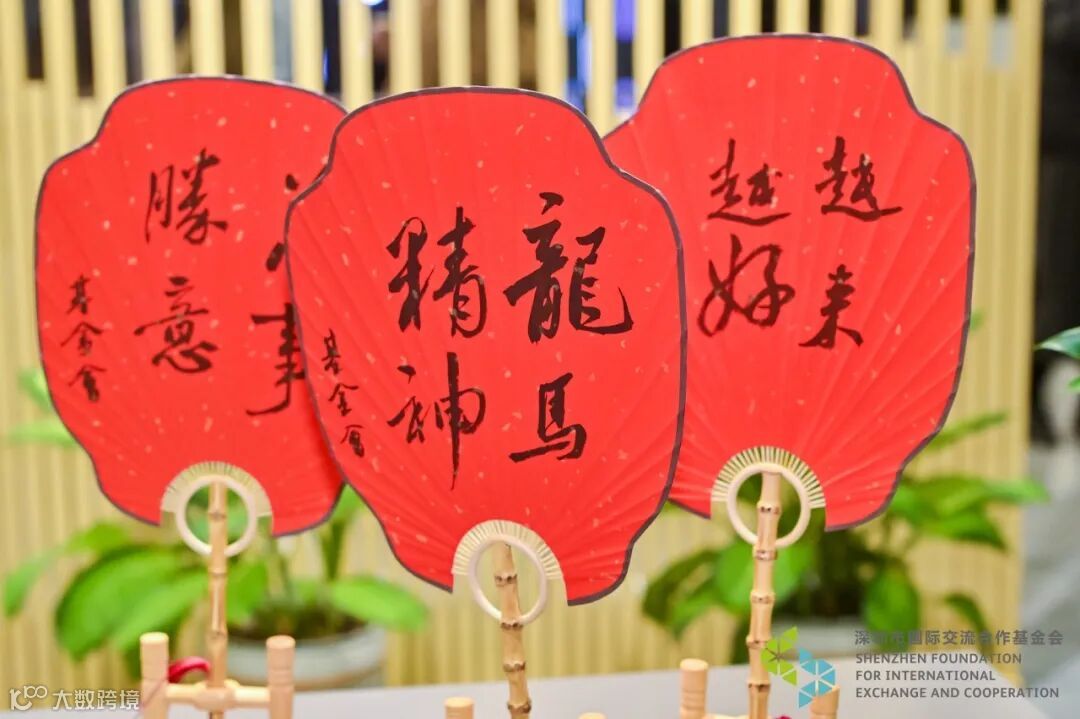 事
勝意
基金會
龍馬
精神
基金會
越来
越好
深圳市国际交流合作基金会
SHENZHEN FOUNDATION
FOR INTERNATIONAL
EXCHANGE AND COOPERATION
大数跨境